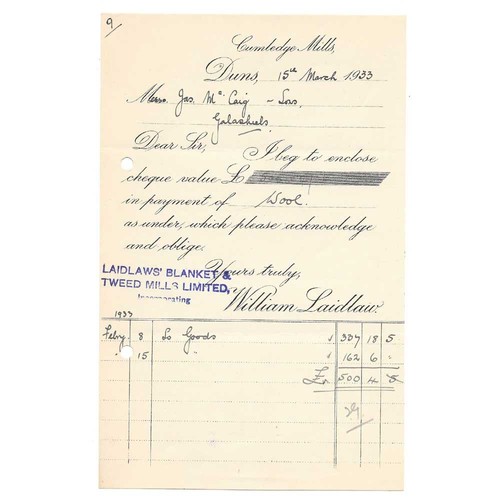 9
Cumledge Mills,
Duns, 15th March 1933
Messrs. Jas. McCaig & Sons,
Galashiels.
Dear Sir,
I beg to enclose
cheque value £
in payment of Wool.
as under, which please acknowledge
and oblige.
Yours truly,
LAIDLAWS' BLANKET &
TWEED MILLS LIMITED,
Incorporating
William Laidlaw.
1933
Febry. 8 To Goods £ 337 18 5
" 15 " £ 162 6 "
£ 500 4 5